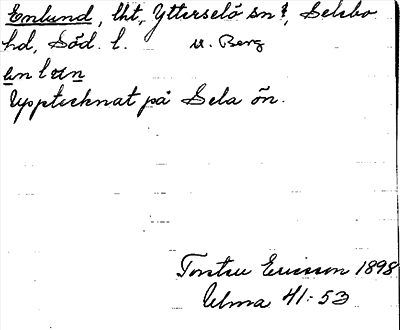 Enlund, lht, Ytterselö sn?, Selebo
hd, Söd. l. u. Berg
Upptecknat på Sela ön.
Torsten Ericsson 1898
Ulma 41:53